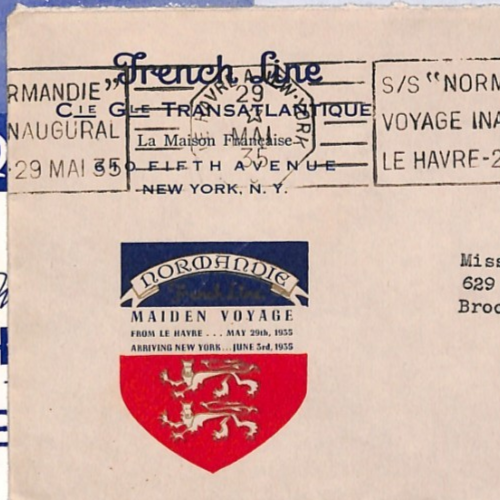 French Line
Cie Gle TRANSATLANTIQUE
La Maison Française
FIFTH AVENUE
NEW YORK, N. Y.
RMANDIE"
NAUGURAL
-29 MAI 35
HAVRE A NEW-YORK
29
MAI
35
S/S "NORM
VOYAGE INA
LE HAVRE-2
NORMANDIE
French Line
MAIDEN VOYAGE
FROM LE HAVRE . . . MAY 29th, 1935
ARRIVING NEW YORK...JUNE 3rd, 1935
Miss
629
Broo